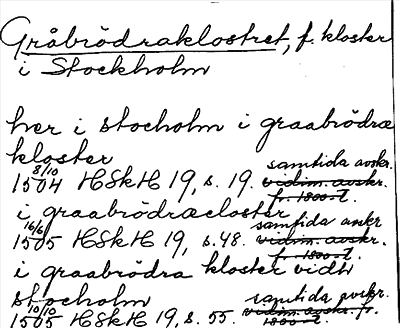 Gråbrödraklostret, f. kloster
i Stockholm
her i stocholm i graabrödræ
kloster
samtida avskr.
1504 8/10 HSkH 19, s. 19. vidim. avskr.
fr. 1800-t.
i graabrödræcloster
samtida avskr
1505 16/6 HSkH 19, s. 48. vidim. avskr.
fr. 1800-t.
i graabrödra kloster vidh
stocholm
samtida avskr.
1505 10/10 HSkH 19, s. 55. vidim. avskr. fr.
1800-t.